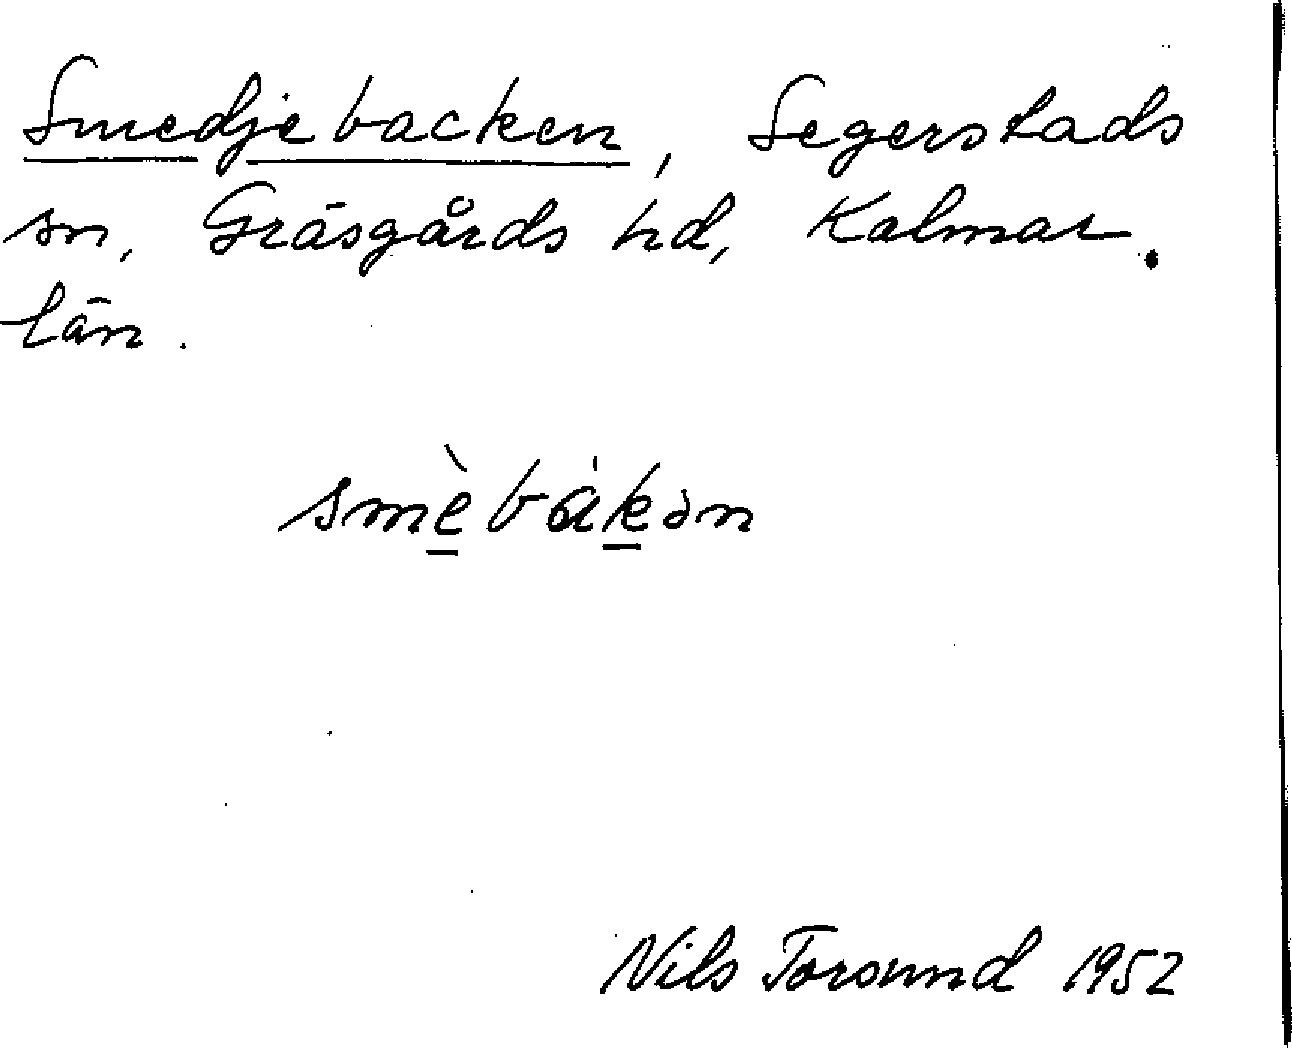 Smedjebacken, Segerstads
sn, Gräsgårds hd, Kalmar
län.
smè̱báḵən
Nils Torsund 1952